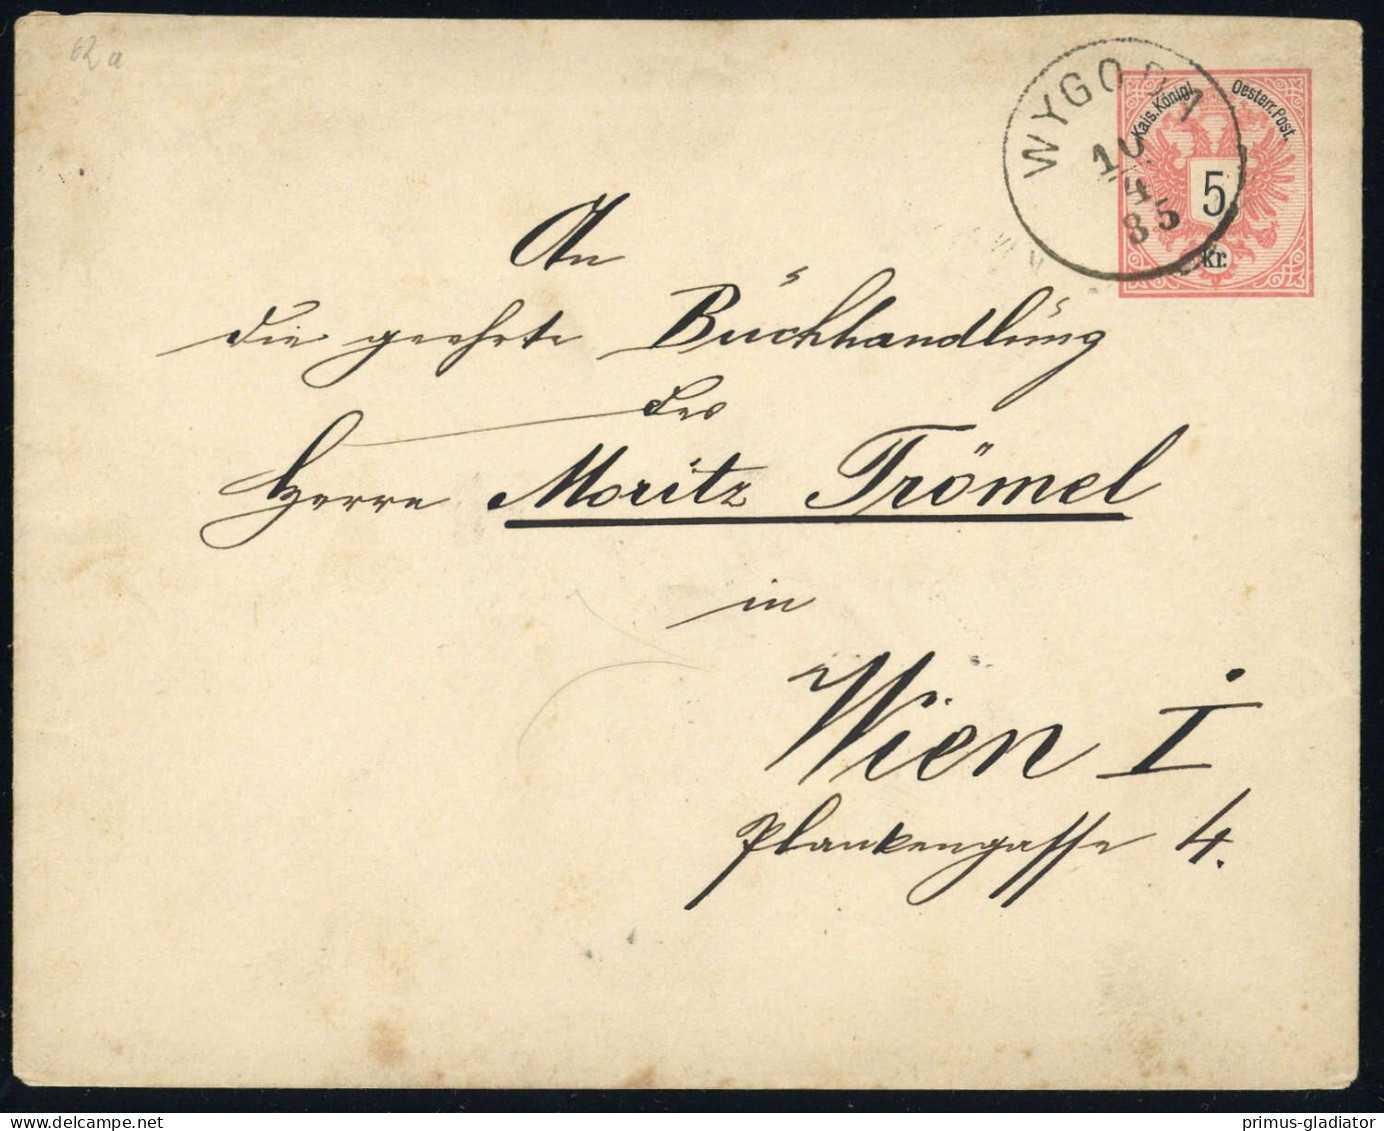 62a
WYGODA
10/4
85
Kais. Königl. Oesterr. Post.
5
kr.
An
die geehrte Buchhandlung
des
Herrn Moritz Trömel
in
Wien I
Plankengasse 4.
primus-gladiator